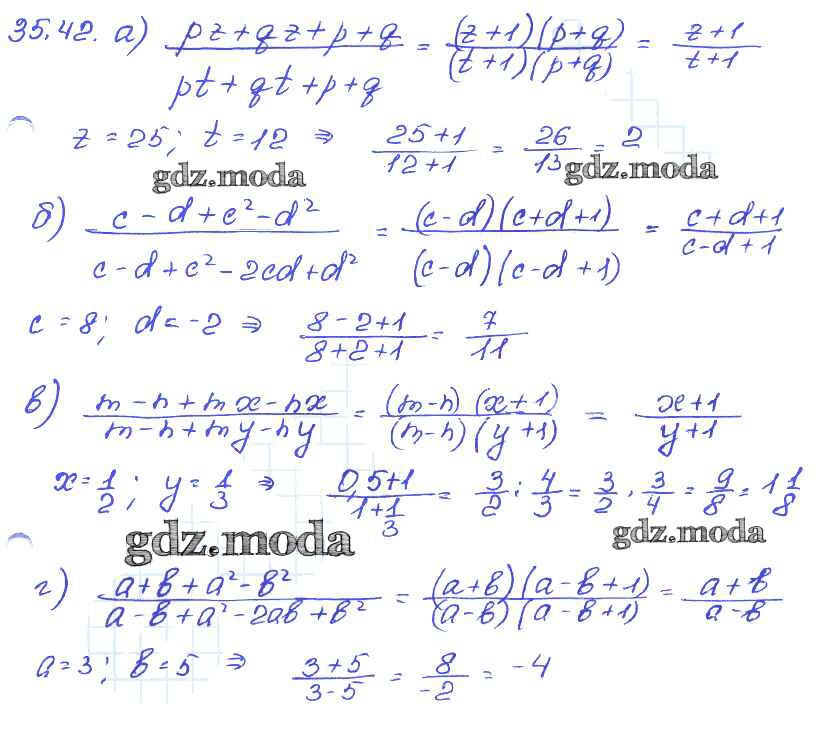 35.42. а) (pz+qz+p+q)/(pt+qt+p+q) = ((z+1)(p+q))/((t+1)(p+q)) = (z+1)/(t+1)
z=25; t=12 ⇒ (25+1)/(12+1) = 26/13 = 2
gdz.moda gdz.moda
б) (c-d+c²-d²)/(c-d+c²-2cd+d²) = ((c-d)(c+d+1))/((c-d)(c-d+1)) = (c+d+1)/(c-d+1)
c=8; d=-2 ⇒ (8-2+1)/(8+2+1) = 7/11
в) (m-n+mx-nx)/(m-n+my-ny) = ((m-n)(x+1))/((m-n)(y+1)) = (x+1)/(y+1)
x=1/2; y=1/3 ⇒ (0,5+1)/(1+1/3) = 3/2 : 4/3 = 3/2 · 3/4 = 9/8 = 1 1/8
gdz.moda gdz.moda
г) (a+b+a²-b²)/(a-b+a²-2ab+b²) = ((a+b)(a-b+1))/((a-b)(a-b+1)) = (a+b)/(a-b)
a=3; b=5 ⇒ (3+5)/(3-5) = 8/-2 = -4